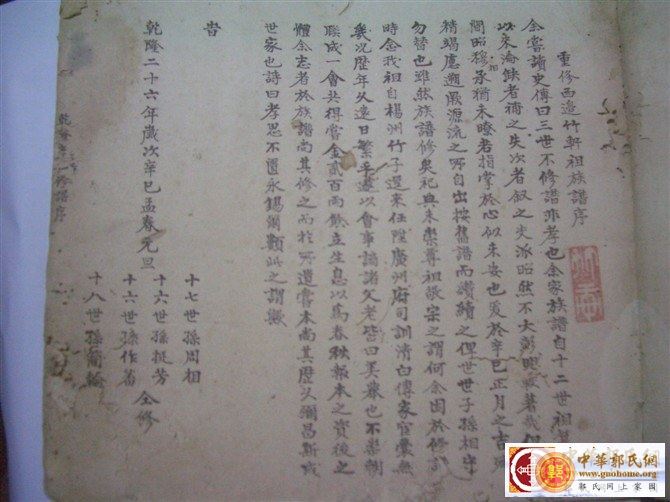 重修西邉竹軒祖族譜序
余嘗讀史傳曰三世不修譜非孝也余家族譜自十二世祖
以來淪缺者補之失次者叙之支派昭然不大彰明較著哉
間昭穆承猶未瞭者指掌於心似未安也爰於辛巳正月之吉
精竭慮遡厥源流之所自出按舊譜而續續之俾世世子孫相守
勿替也雖然族譜修矣祀典未崇尊祖敬宗之謂何余因於修
時念我祖自楊洲竹子選來任陞廣州府司訓清白傳家宦囊無
幾況歷年久遠日繁乎遂以會事議諸父老皆曰美舉也不朝
聯成一會共得嘗金貳百兩餘立生息以為春秋報本之資後之
體余志者於族譜尚其修之而於所遺嘗本尚其歷久彌昌斯成
世家也詩曰孝思不匱永錫爾類此之謂歟
旹
乾隆二十六年歲次辛巳孟春元旦
十七世孫周相
十六世孫挺芳
十六世孫作
十八世孫
仝修
中華郭氏網
www.guohome.org
郭氏網上家園